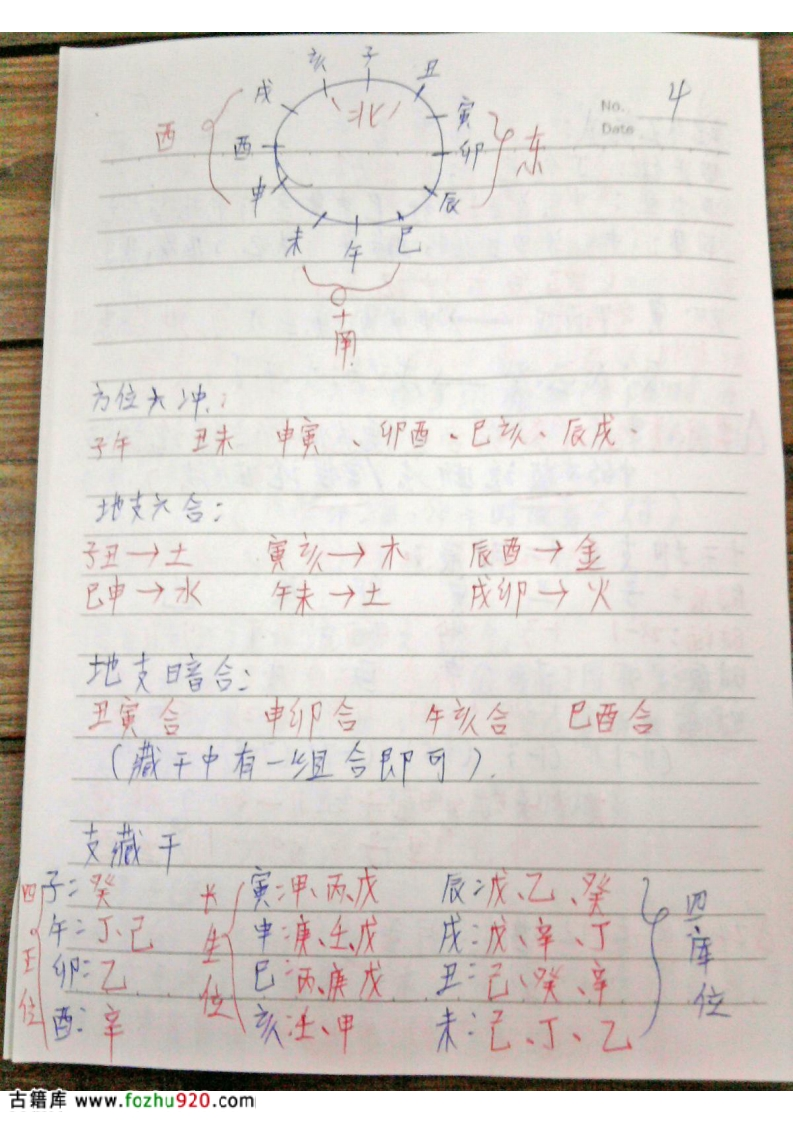 No. 4
Date
亥 子 丑
戌 北 寅
西 酉 卯 东
申 辰
未 午 巳
南
方位六冲:
子午 丑未 申寅、卯酉、巳亥、辰戌、
地支六合:
子丑→土 寅亥→木 辰酉→金
巳申→水 午未→土 戌卯→火
地支暗合:
丑寅合 申卯合 午亥合 巳酉合
(藏干中有一组合即可).
支藏干
四正位
子:癸
午:丁、己
卯:乙
酉:辛
长生位
寅:甲、丙、戊
申:庚、壬、戊
巳:丙、庚、戊
亥:壬、甲
辰:戊、乙、癸
戌:戊、辛、丁
丑:己、癸、辛
未:己、丁、乙
四库位
古籍库 www.fozhu920.com